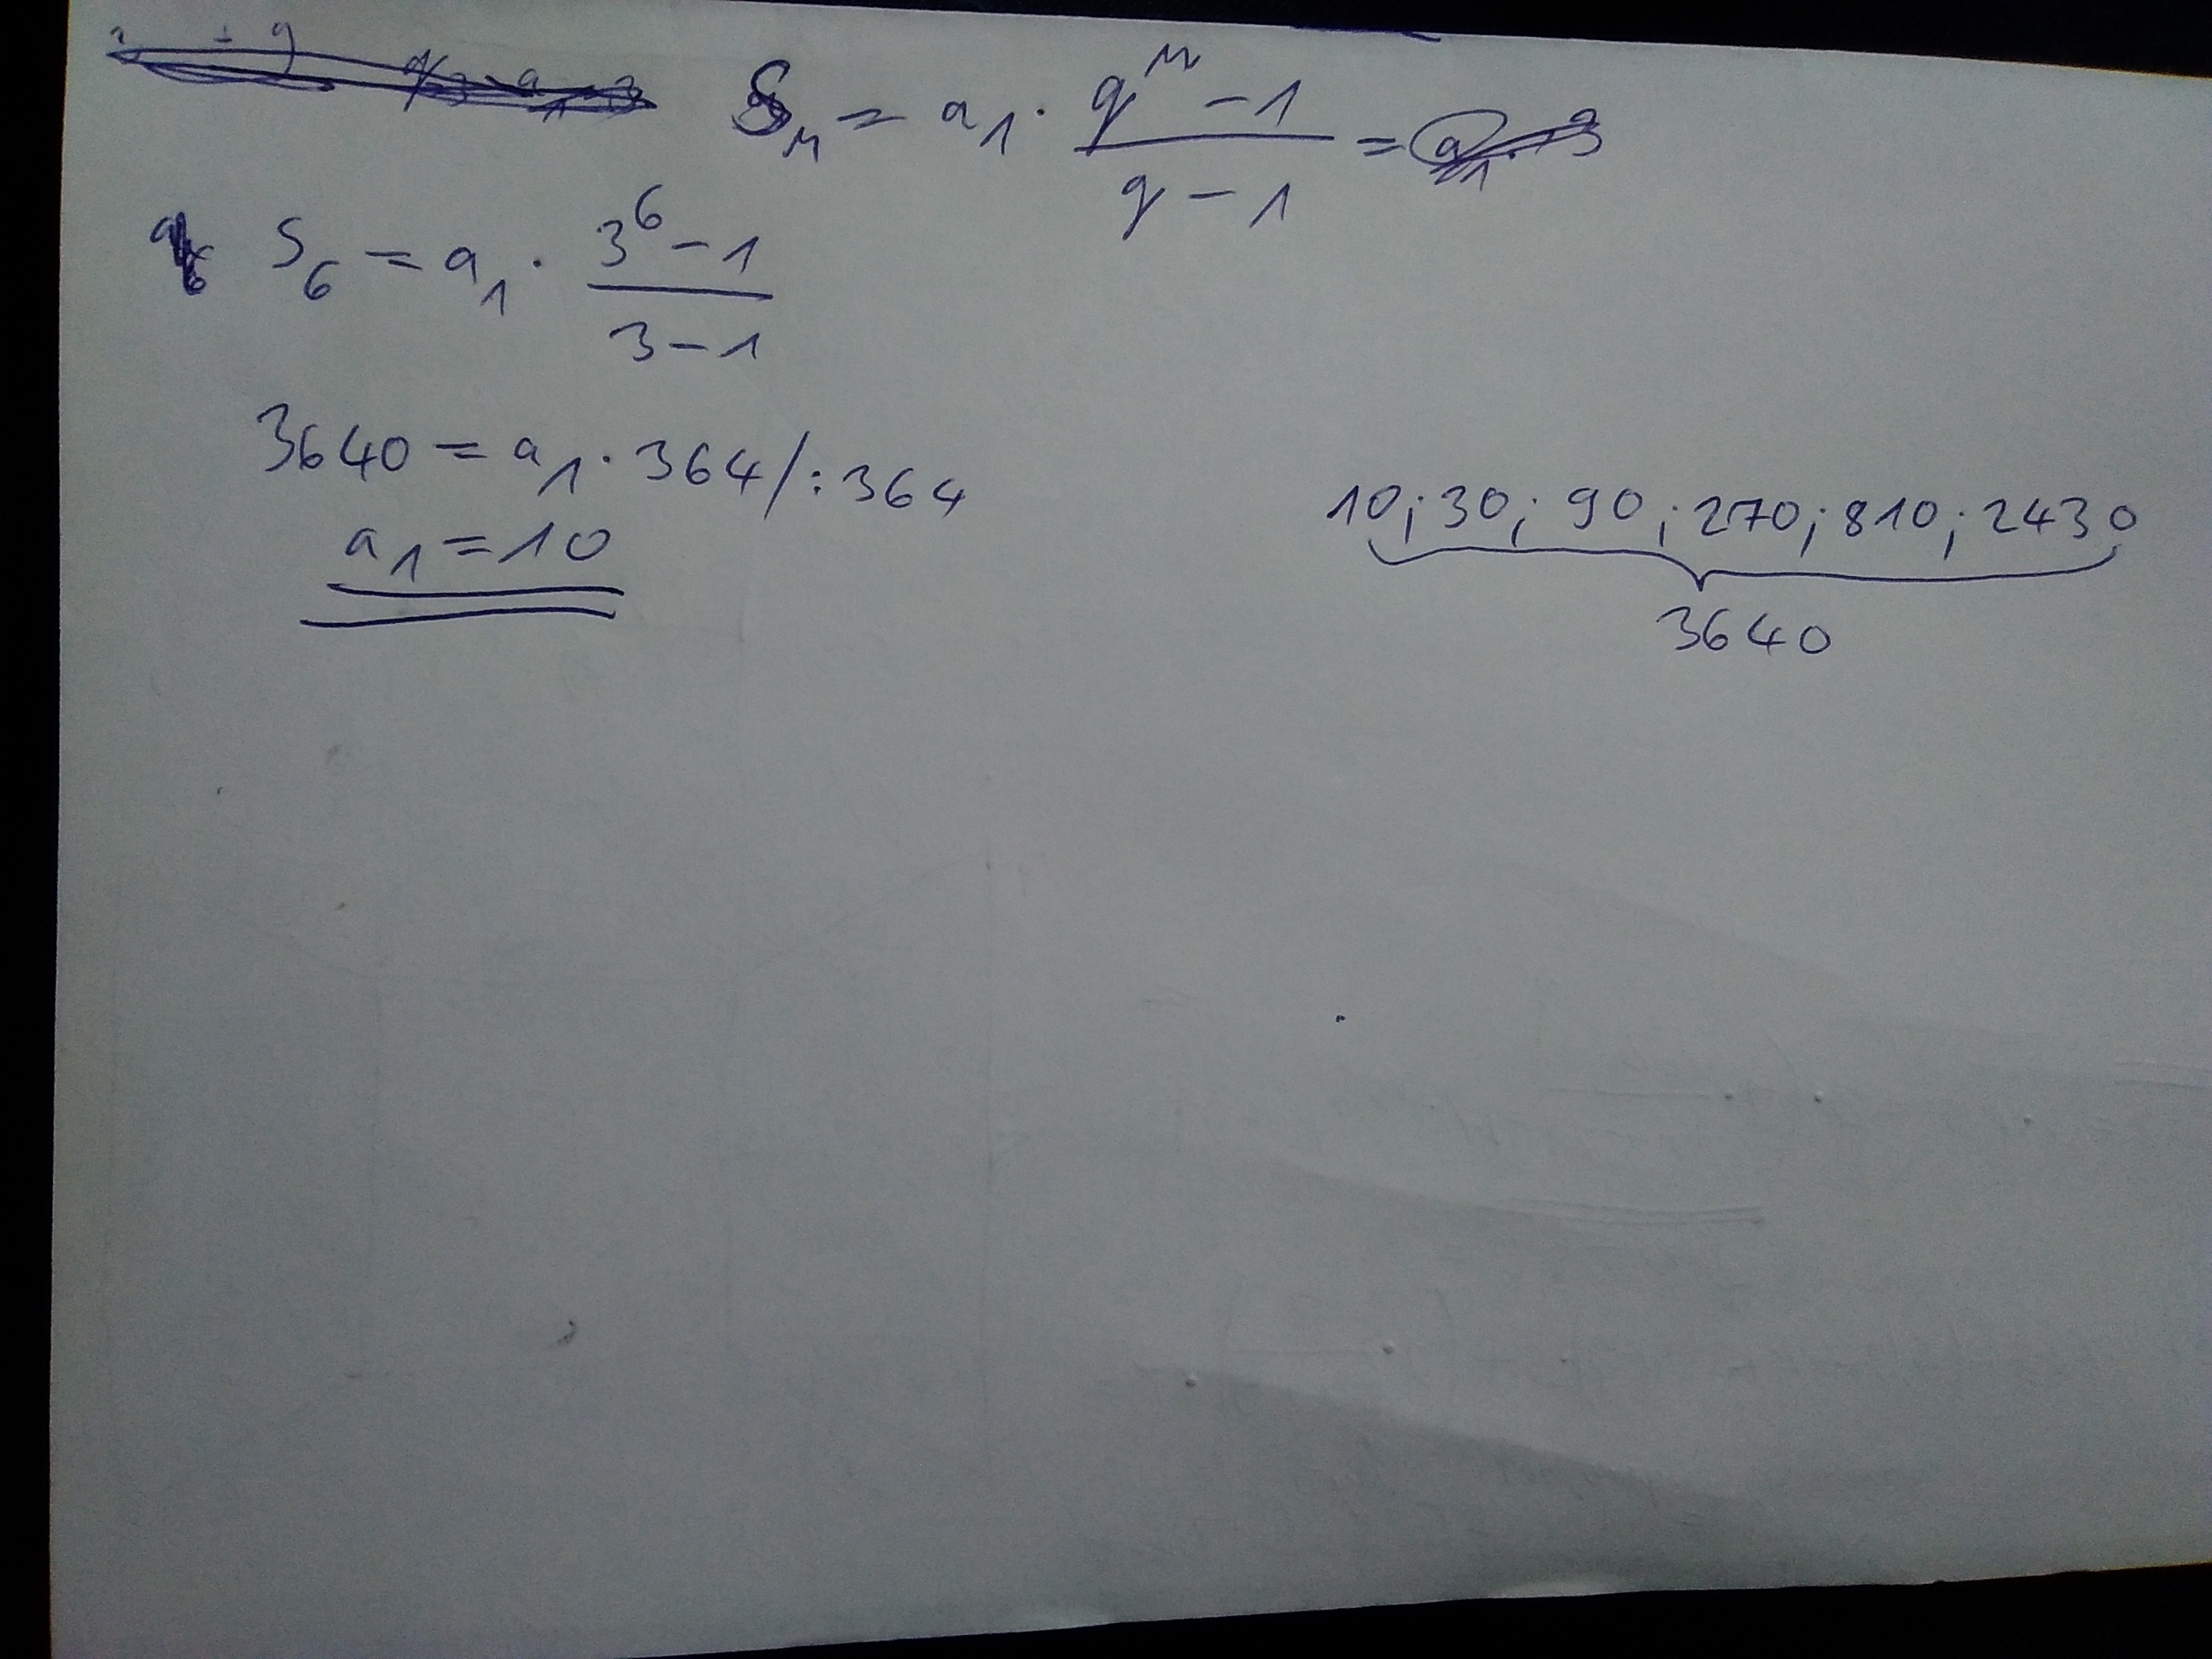 Sₙ = a₁ · (qⁿ - 1)/(q - 1) =
S₆ = a₁ · (3⁶ - 1)/(3 - 1)
3640 = a₁ · 364 /:364
a₁ = 10
10; 30; 90; 270; 810; 2430
3640